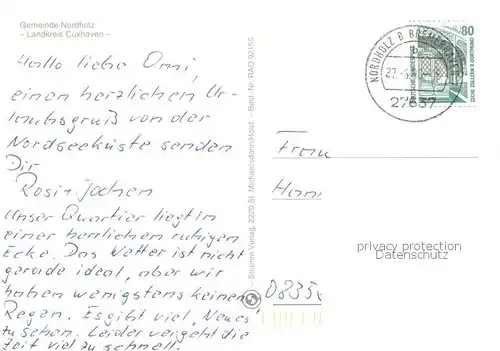 Gemeinde Nordholz
– Landkreis Cuxhaven –
Hallo liebe Omi,
einen herzlichen Ur-
laubsgruß von der
Nordseeküste senden
Dir
Rosi + Jochen
Unser Quartier liegt in
einer herrlichen ruhigen
Ecke. Das Wetter ist nicht
gerade ideal, aber wir
haben wenigstens keinen
Regen. Es gibt viel „Neues"
zu sehen. Leider vergeht die
Zeit viel zu schnell.
Stramm Verlag, 2200 St. Michaelisdonn/Holst. – Best.-Nr. RAD 92155
NORDHOLZ B BREMERHAVEN
27637
80
DEUTSCHE BUNDESPOST
ZECHE ZOLLERN II DORTMUND
Frau
privacy protection
Datenschutz
0835